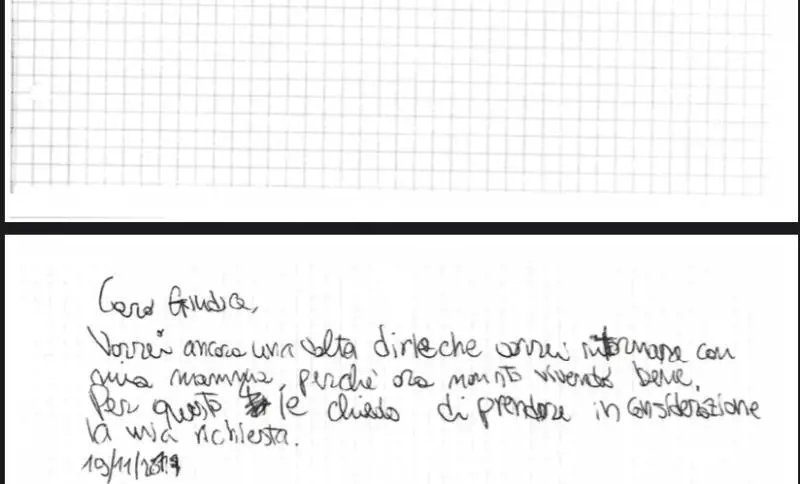 Caro Giudice,
Vorrei ancora una volta dirle che vorrei ritornare con
mia mamma, perché ora non sto vivendo bene.
Per questo le chiedo di prendere in considerazione
la mia richiesta.
19/11/2019